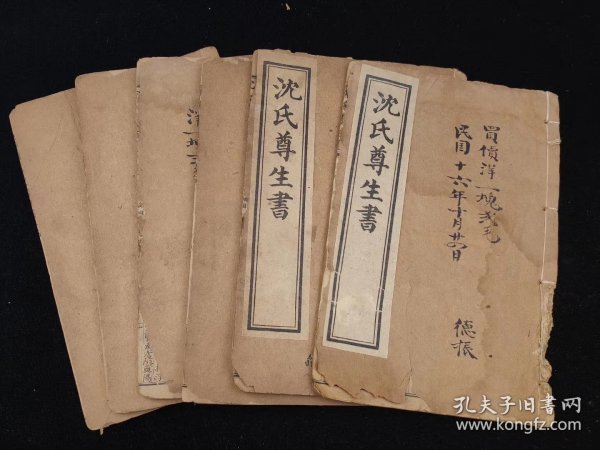 沈氏尊生書
沈氏尊生書
買價洋一塊弍毛
民国十六年十月廿六日
德振
孔夫子旧書网
www.kongfz.com